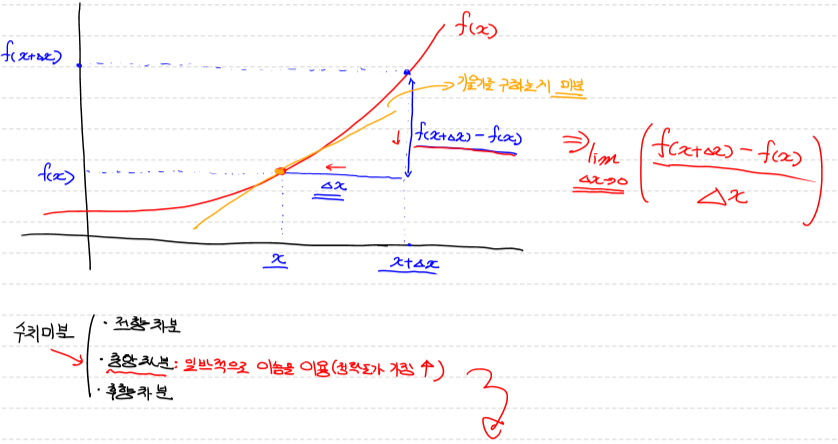 f(x)
f(x+Δx)
기울기를 구하는게 미분
f(x+Δx) - f(x)
⇒ lim Δx→0 ( f(x+Δx) - f(x) / Δx )
f(x)
Δx
x
x+Δx
수치미분
· 전향차분
· 중앙차분: 일반적으로 이놈을 이용(정확도가 가장 ↑)
· 후향차분